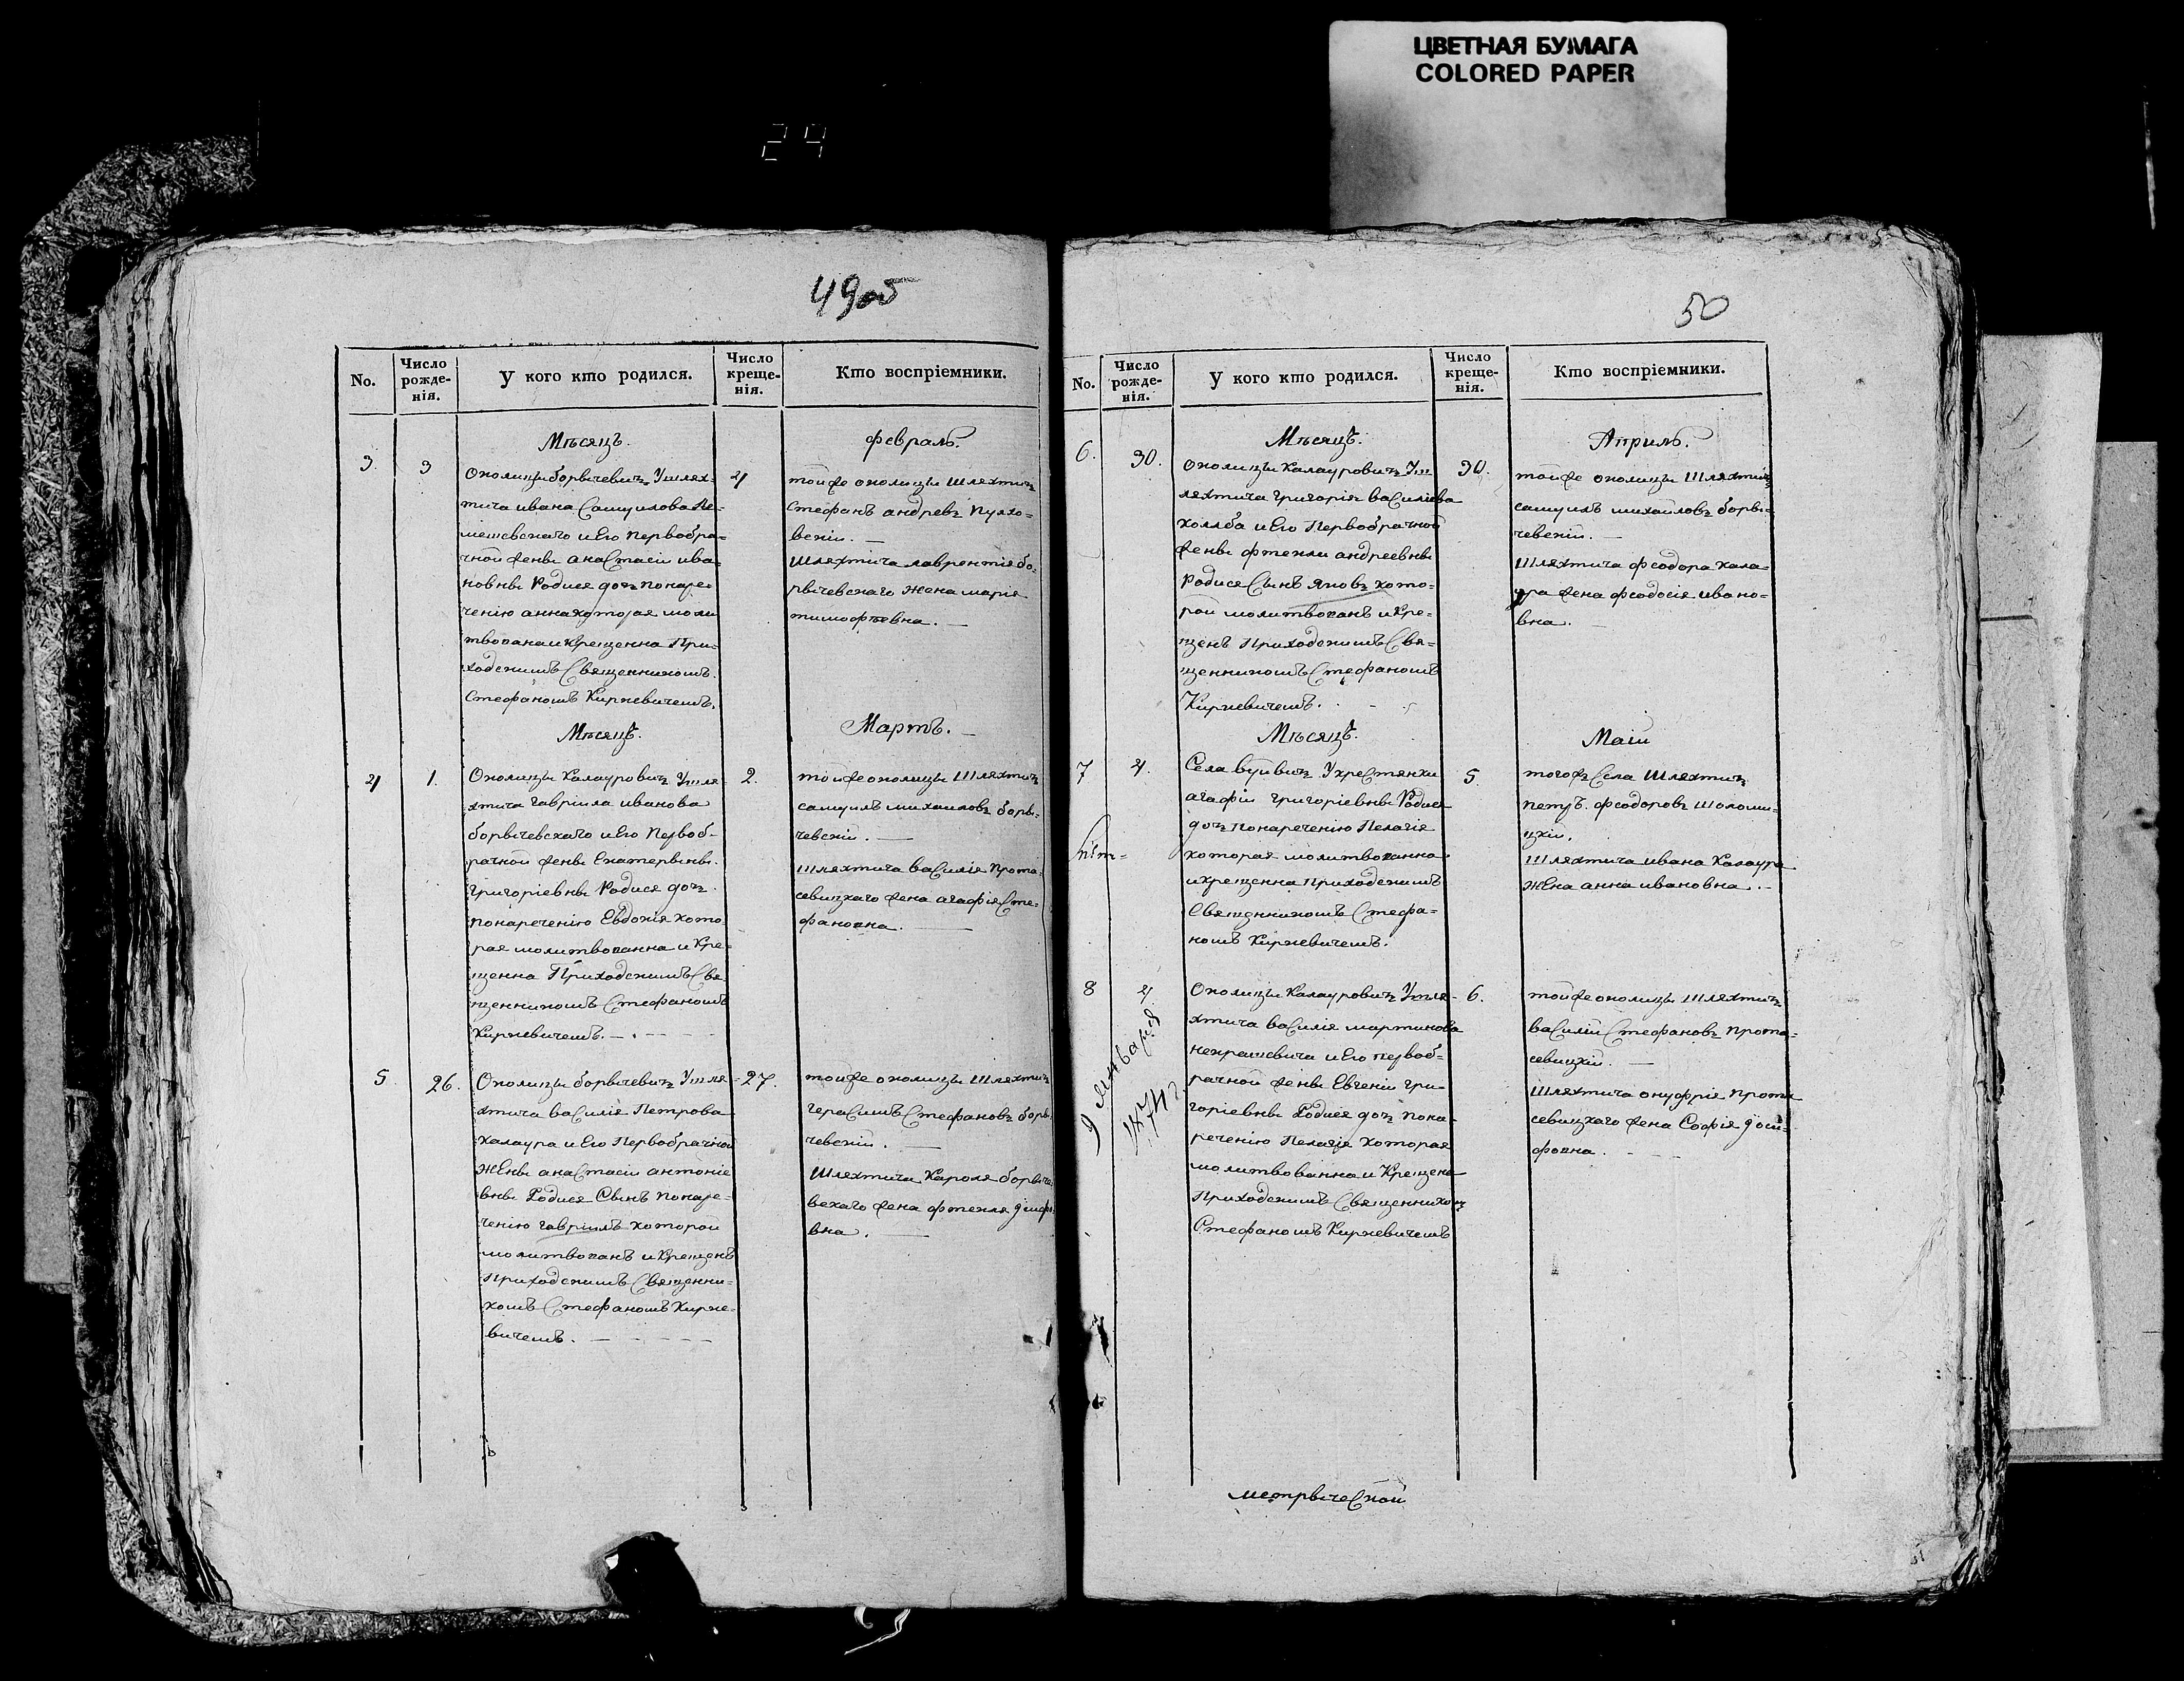 ЦВЕТНАЯ БУМАГА
COLORED PAPER
24
49об
No.
Число рожде-нія.
У кого кто родился.
Число креще-нія.
Кто воспріемники.
Мѣсяцъ.
февраль.
3.
3
4
Околицы борычевичъ Ушлях-
тича ивана Самуилова Ле-
мешевскаго и Его Первобра-
чной жены анаСтасіи ива-
новны Родися дочъ понаре-
ченію анна которая моли
твована и крещенна При-
ходскимъ Священникомъ.
Стефаномъ Киркевичемъ.
тойже околицы шляхтичъ
Стефанъ андревъ
вскій. —
шляхтича лаврентія бо-
рычевскаго жена марія
тимофѣевна. —
Мѣсяцъ.
Мартъ. —
4
1.
2.
Околицы Калауровичъ Ушля-
хтича гавріила иванова
борычевскаго и Его Первоб-
рачной жены Екатерыны.
григоріевны Родися дочъ.
понареченію Евдокія кото
рая молитвованна и Кре-
щенна Приходскимъ Свя
щенникомъ Стефаномъ
Киркевичемъ. —
тойже околицы Шляхтичъ
самуилъ михаиловъ боры-
чевскій. —
шляхтича ваСилія Прота-
севицкаго жена агафія Сте-
фановна. —
5
26.
27.
Околицы борычевичъ Ушля-
хтича ваСилія Петрова
калаура и Его Первобрачной
жЕны анаСтасіи антоніе
вны Родися Сынъ понаре-
ченію гавріилъ которой
молитвованъ и Крещенъ
Приходскимъ Священни-
комъ Стефаномъ Кирке-
вичемъ. —
тойже околицы Шляхтичъ
гераСимъ Стефановъ боры
чевскій. —
Шляхтича Кароля борыче
вскаго жена фтекля
вна. —
50
No.
Число рожде-нія.
У кого кто родился.
Число креще-нія.
Кто воспріемники.
Мѣсяцъ.
Априль.
6.
30.
30.
Околицы Калауровичъ Уш
ляхтича григорія ваСиліева
холяба и Его Первобрачной
жены фтекли андреевны
Родися Сынъ Яковъ кото-
рой молитвованъ и Кре-
щенъ Приходскимъ Свя-
щенникомъ Стефаномъ
Киркевичемъ.
тойже околицы Шляхтичъ
самуилъ михайловъ боры-
чевскій. —
шляхтича феодора кала-
ура жена феодосія ивано-
вна. —
Мѣсяцъ.
Маій
7
4.
5.
Села вуйвичъ УкреСтянки
агафіи григоріевны Родися
дочъ понареченію Пелагія
которая молитвованна
и крещенна Приходскимъ
Священникомъ Стефа-
номъ Киркевичемъ.
тогожъ Села Шляхтичъ
петръ. феодоровъ шоломи-
цкій.
шляхтича ивана Калаура
жЕна анна ивановна. —
8
4.
6.
Околицы Калауровичъ Ушля-
хтича ваСилія мартинова
некрашевича и Его первоб-
рачной жены Евгеніи гри-
горіевны Родися дочъ пона-
реченію Пелагія которая
молитвованна и Крещена
Приходскимъ Священником
Стефаномъ Киркевичемъ
тойже околицы шляхтичъ
ваСилій Стефановъ прота-
севицкій. —
шляхтича онуфрія прота
севицкаго жена Софія
фовна. —
9 января
1874
метрычеСкой